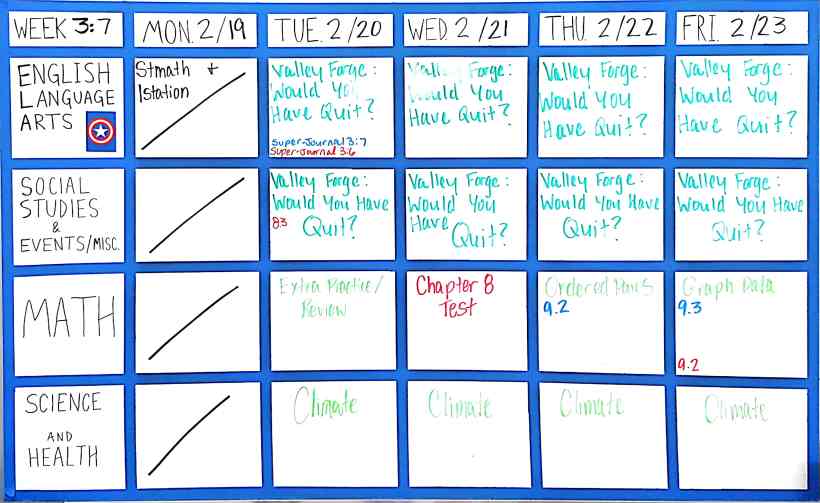 WEEK 3:7
MON. 2/19
TUE. 2/20
WED. 2/21
THU. 2/22
FRI. 2/23
ENGLISH
LANGUAGE
ARTS
Stmath +
Istation
Valley Forge:
Would You
Have Quit?
Super-Journal 3:7
Super-Journal 3:6
Valley Forge:
Would You
Have Quit?
Valley Forge:
Would You
Have Quit?
Valley Forge:
Would You
Have Quit?
SOCIAL
STUDIES
&
EVENTS/MISC.
Valley Forge:
Would You Have
8.3 Quit?
Valley Forge:
Would You
Have Quit?
Valley Forge:
Would You Have
Quit?
Valley Forge:
Would You Have
Quit?
MATH
Extra Practice/
Review
Chapter 8
Test
Ordered Pairs
9.2
Graph Data
9.3
9.2
SCIENCE
AND
HEALTH
Climate
Climate
Climate
Climate